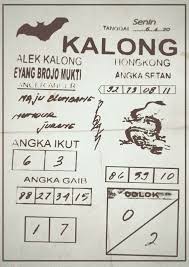 Senin
TANGGAL 6-4-20
KALONG
ALEK KALONG
HONGKONG
EYANG BROJO MUKTI
ANGKA SETAN
92 73 08 11
MAJU
MUNDUR
JURANG
ANGKA IKUT
6 3
ANGKA GAIB
88 27 34 15
86 59 10
COLOK
0
2
1 7